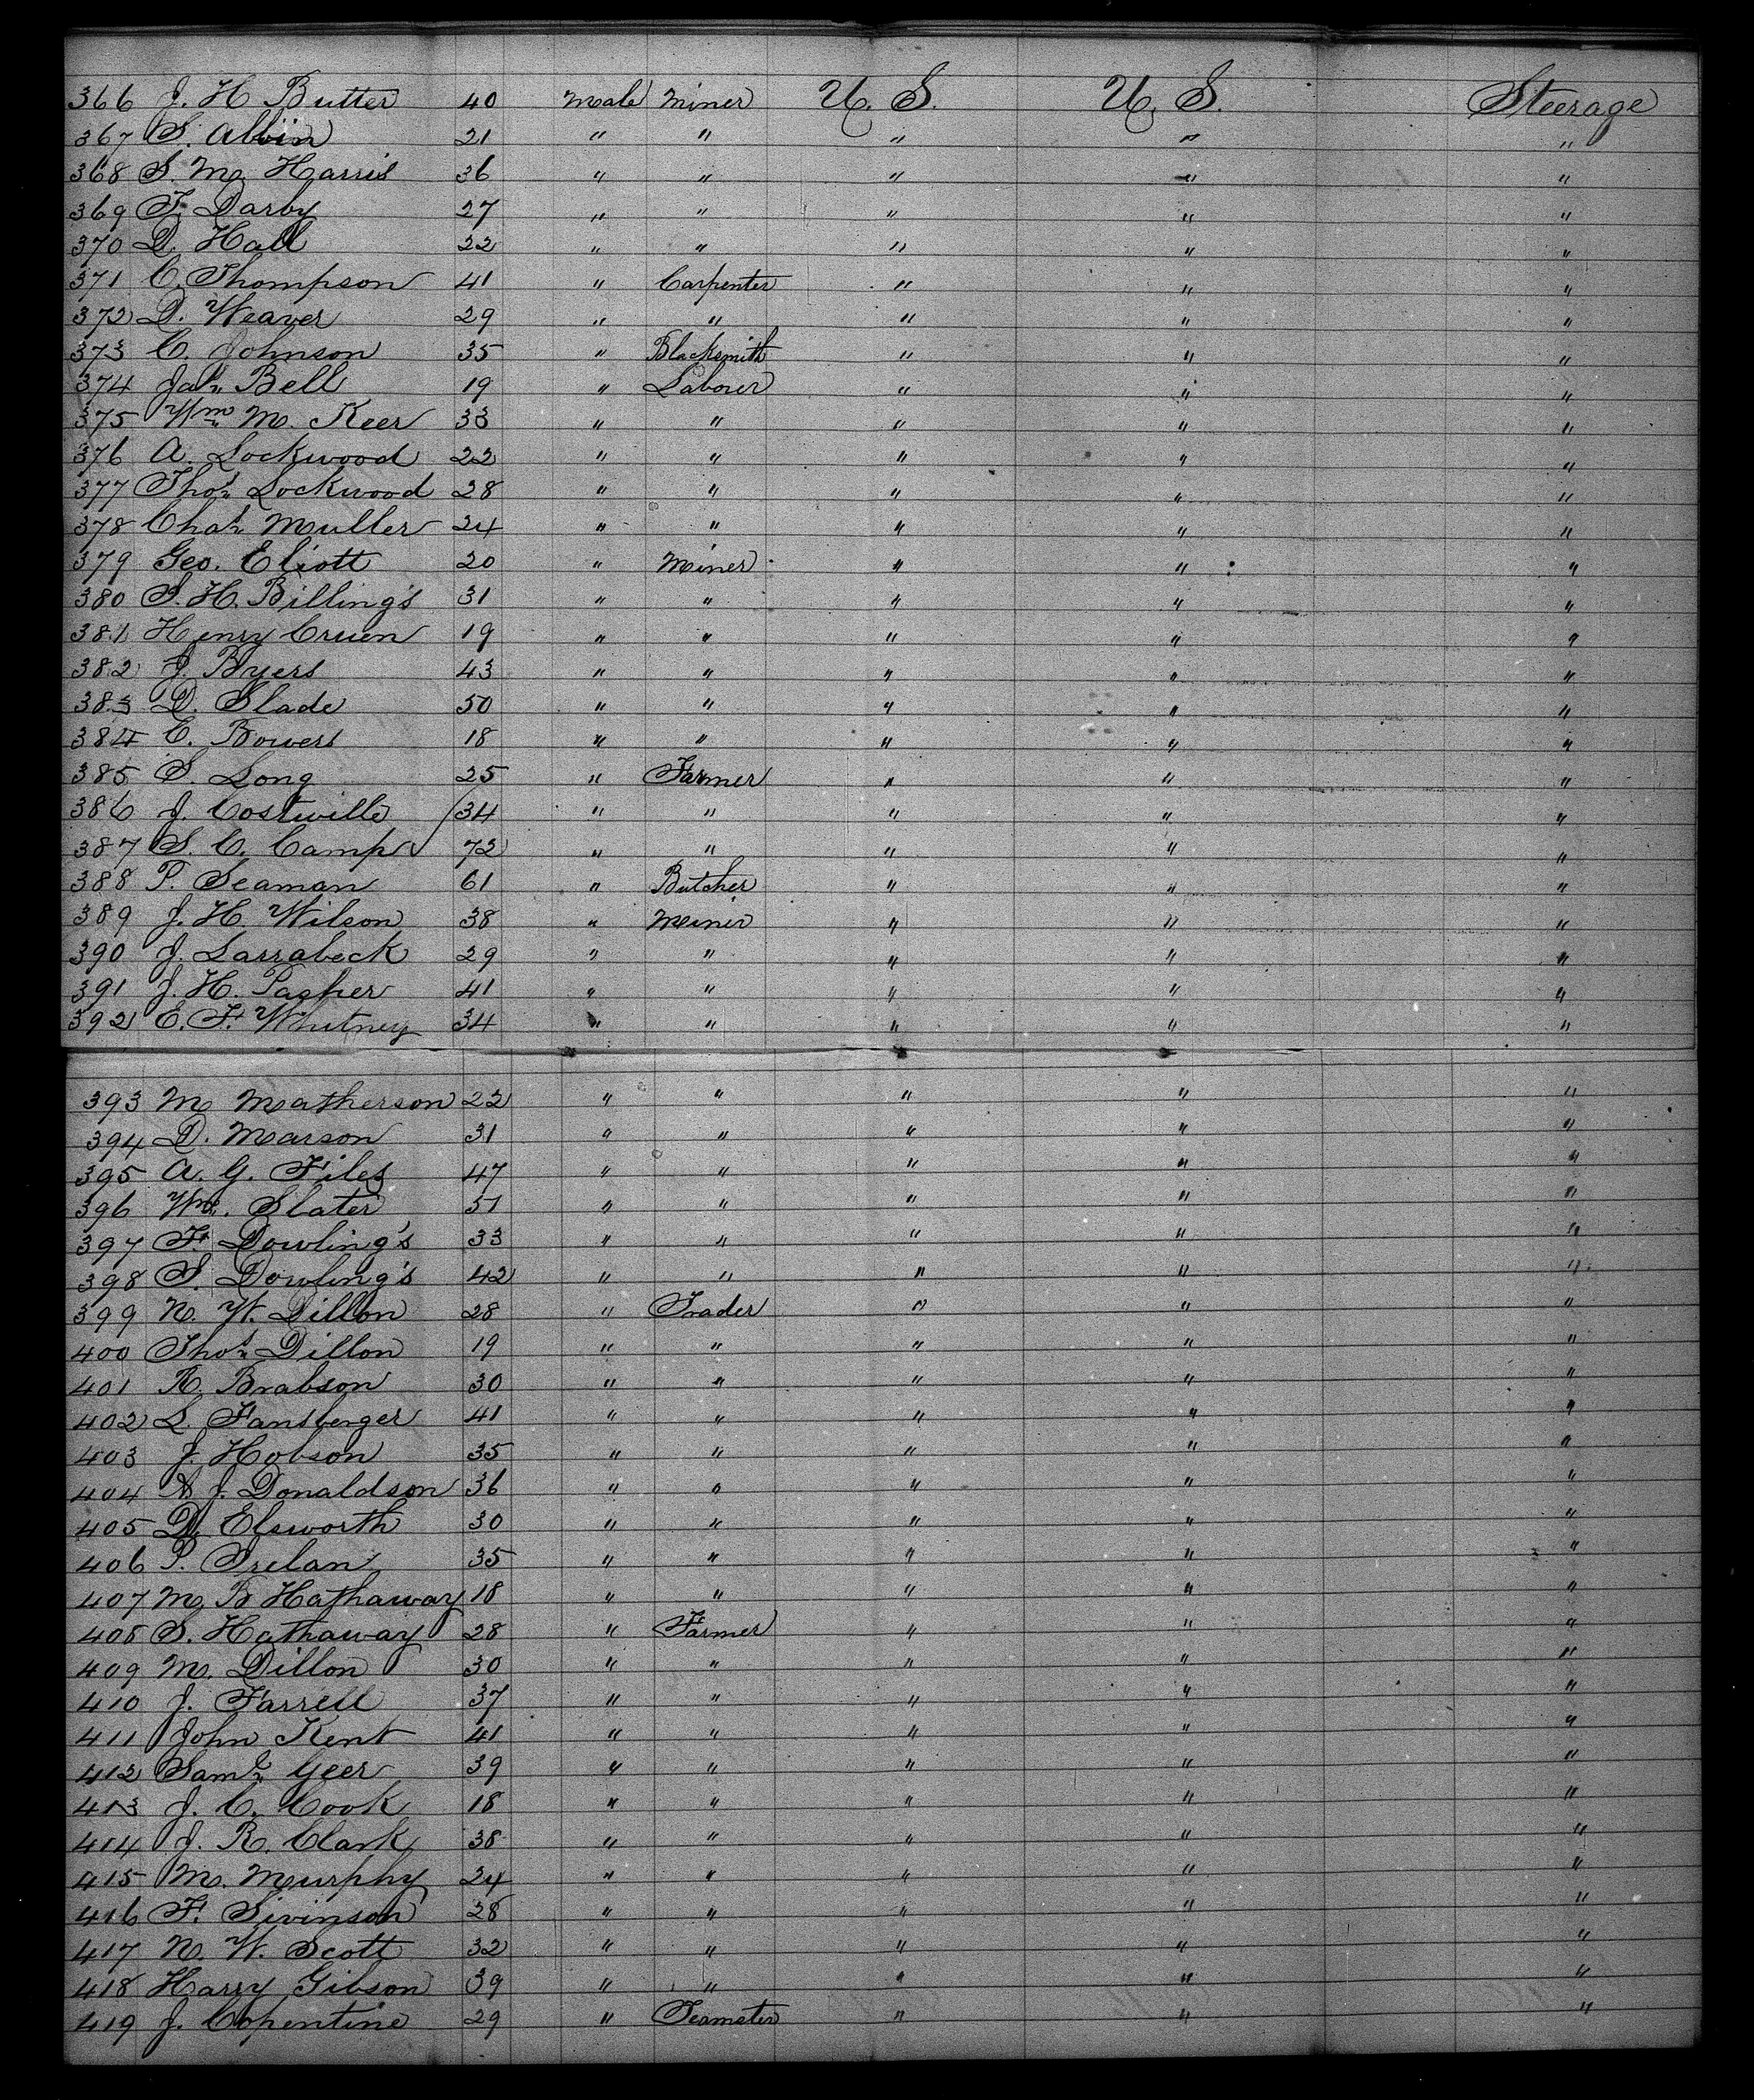 366 J. H Butter 40 Male Miner U. S. U. S. Steerage
367 S. Albin 21 " " " " "
368 S. M. Harris 36 " " " " "
369 F. Darby 27 " " " " "
370 D. Hall 22 " " " " "
371 C. Thompson 41 " Carpenter " " "
372 D. Weaver 29 " " " " "
373 C. Johnson 35 " Blacksmith " " "
374 Jas Bell 19 " Laborer " " "
375 Wm M. Keer 33 " " " " "
376 A. Lockwood 22 " " " " "
377 Thos Lockwood 28 " " " " "
378 Chas Muller 24 " " " " "
379 Geo. Eliott 20 " Miner " " "
380 S. H. Billing's 31 " " " " "
381 Henry Cruen 19 " " " " "
382 J. Byers 43 " " " " "
383 D. Slade 50 " " " " "
384 C. Bowers 18 " " " " "
385 S. Long 25 " Farmer " " "
386 J. Costwille 34 " " " " "
387 S. C. Camp 72 " " " " "
388 P. Seaman 61 " Butcher " " "
389 J. H. Wilson 38 " Miner " " "
390 J. Larrabeck 29 " " " " "
391 J. H. Pasher 41 " " " " "
392 E. F. Whitney 34 " " " " "
393 M Matherson 22 " " " " "
394 D. Marson 31 " " " " "
395 A. G. Files 47 " " " " "
396 Wm. Slater 51 " " " " "
397 F. Dowling's 33 " " " " "
398 S. Dowling's 42 " " " " "
399 N. W. Dillon 28 " Trader " " "
400 Thos Dillon 19 " " " " "
401 R. Brabson 30 " " " " "
402 L. Fansberger 41 " " " " "
403 J. Hobson 35 " " " " "
404 J. Donaldson 36 " " " " "
405 D. Elsworth 30 " " " " "
406 P. Irelan 35 " " " " "
407 M. B Hathaway 18 " " " " "
408 S. Hathaway 28 " Farmer " " "
409 M. Dillon 30 " " " " "
410 J. Farrell 37 " " " " "
411 John Kent 41 " " " " "
412 Saml Geer 39 " " " " "
413 J. C. Cook 18 " " " " "
414 J. R. Clark 38 " " " " "
415 M. Murphy 24 " " " " "
416 F. Sivinson 28 " " " " "
417 N. W. Scott 32 " " " " "
418 Harry Gibson 39 " " " " "
419 J. Copentine 29 " Teamster " " "